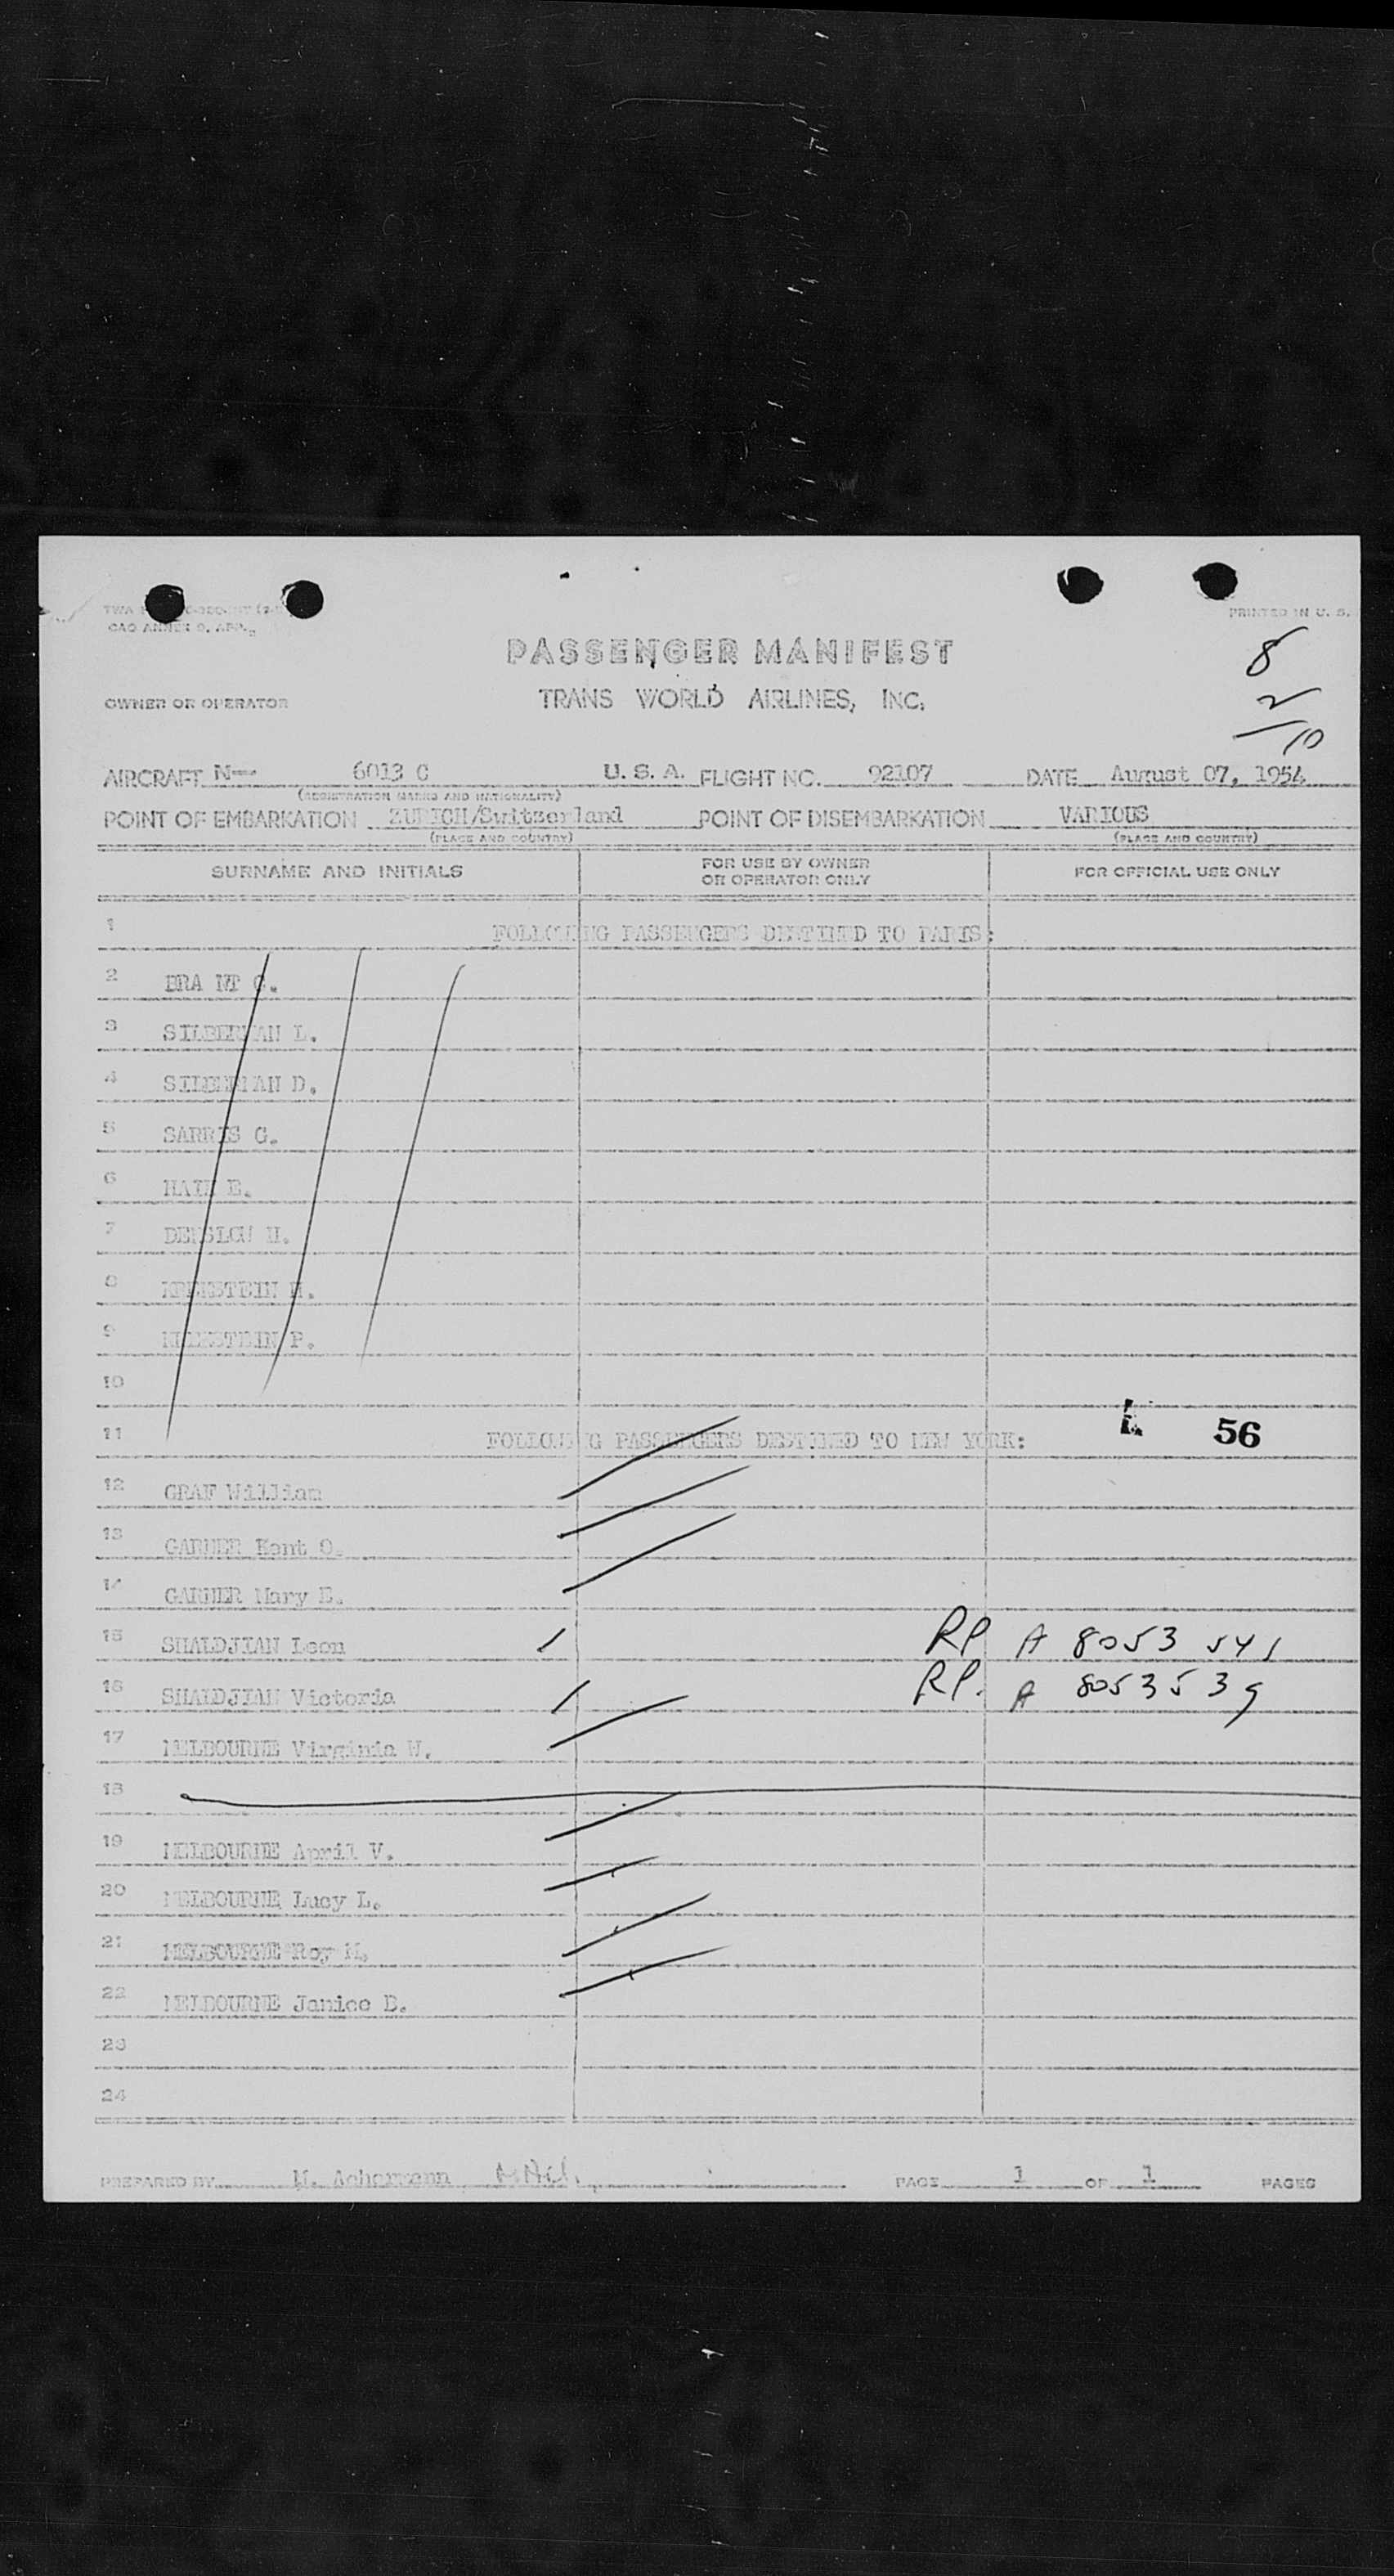 TWA
CAO ANNEX 9, APP.
PRINTED IN U. S.
PASSENGER MANIFEST
8
OWNER OR OPERATOR
TRANS WORLD AIRLINES, INC.
2
10
AIRCRAFT N— 6013 C U. S. A. FLIGHT NO. 92107 DATE August 07, 1954
(REGISTRATION MARKS AND NATIONALITY)
POINT OF EMBARKATION ZURICH/Switzerland POINT OF DISEMBARKATION VARIOUS
(PLACE AND COUNTRY) (PLACE AND COUNTRY)
SURNAME AND INITIALS FOR USE BY OWNER OR OPERATOR ONLY FOR OFFICIAL USE ONLY
1 FOLLOWING PASSENGERS DESTINED TO PARIS:
2 BRA NT C.
3 SILBERMAN L.
4 SILBERMAN D.
5 SARRIS G.
6
7 DENSLOW H.
8
9
10
11 FOLLOWING PASSENGERS DESTINED TO NEW YORK: 56
12 GRAF William
13 GARNER Kent O.
14 GARNER Mary E.
15 SHALDJIAN Leon RP A 8053 541
16 SHALDJIAN Victoria RP. A 8053539
17 MELBOURNE Virginia W.
18
19 MELBOURNE April V.
20 MELBOURNE Lucy L.
21 MELBOURNE Roy M.
22 MELBOURNE Janice D.
23
24
PREPARED BY M. Achermann PAGE 1 OF 1 PAGES